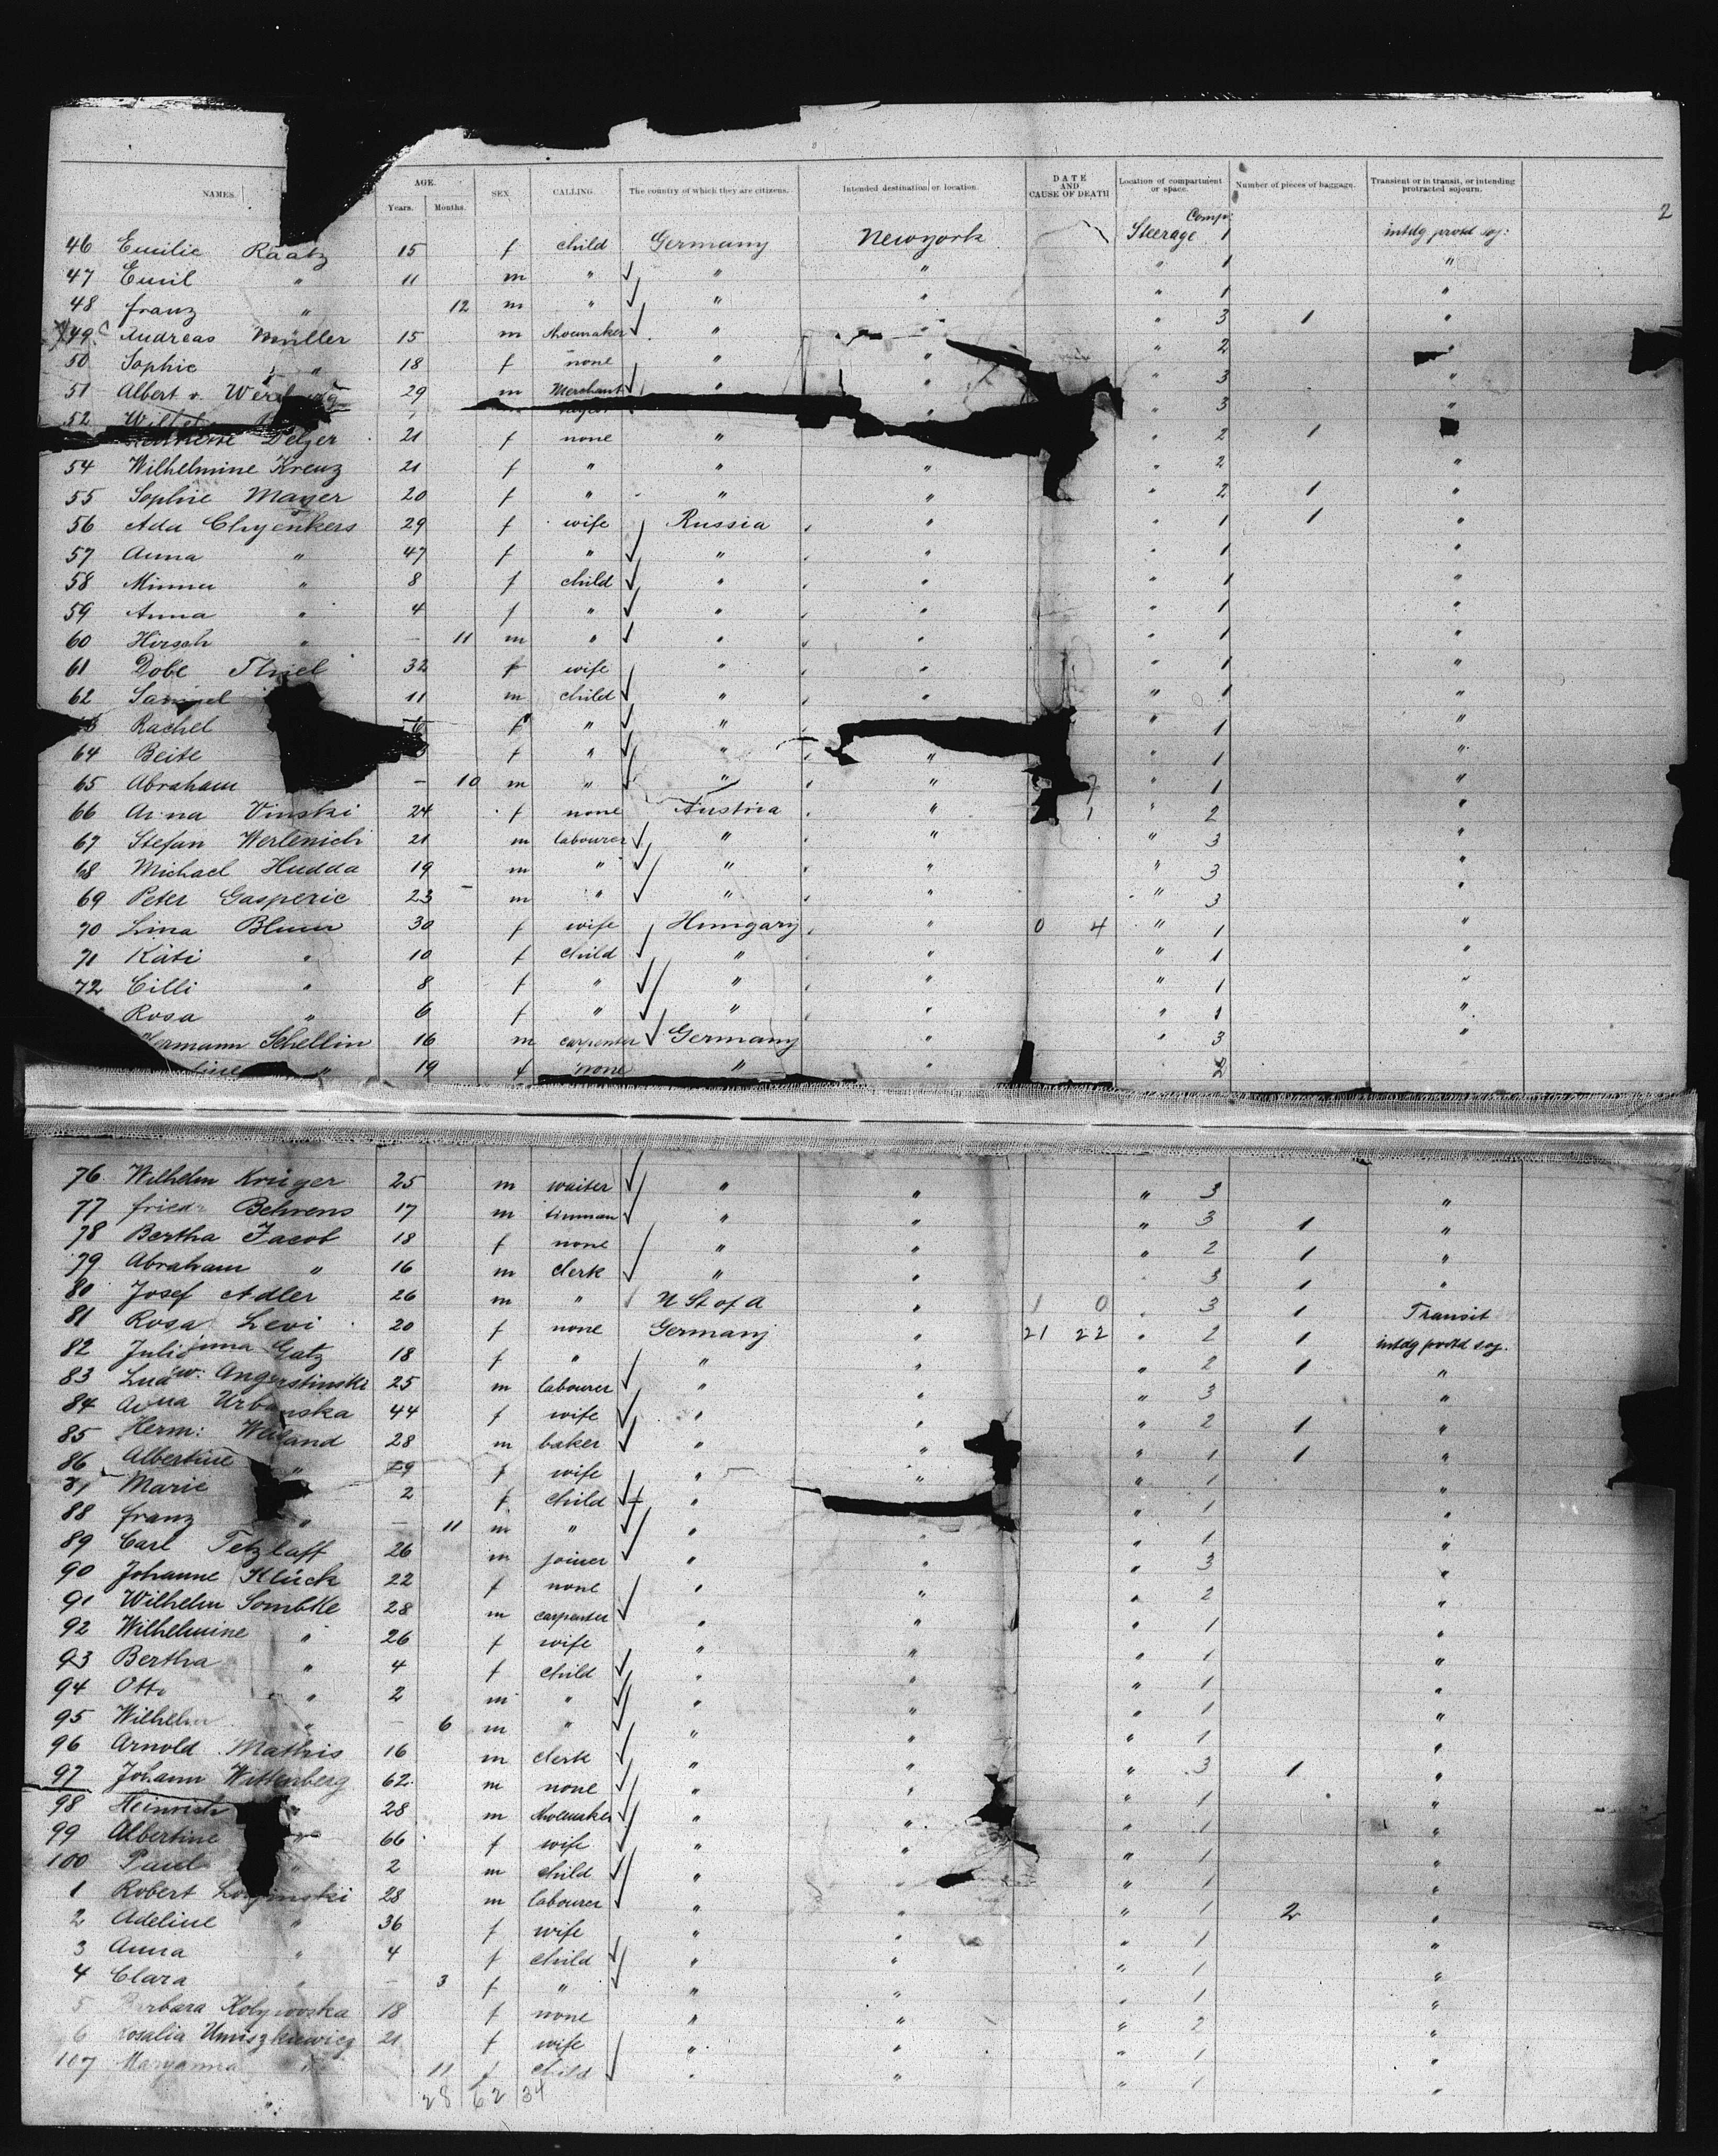 2
NAMES. AGE. Years. Months. SEX CALLING. The country of which they are citizens. Intended destination or location. DATE AND CAUSE OF DEATH Location of compartment or space. Number of pieces of baggage. Transient or in transit, or intending protracted sojourn.
Comp:
46 Emilie Raatz 15 f child Germany Newyork Steerage 1 intdg protd soj:
47 Emil " 11 m " " " " 1 "
48 franz " 12 m " " " " 1 "
49 Andreas Müller 15 m shoemaker " " " 3 1 "
50 Sophie " 18 f none " " " 2
51 Albert v. 29 m Merchant " " " 3 "
52 " " 3 "
Delzer 21 f none " " 2 1
54 Wilhelmine Kreuz 21 f " " " " 2 "
55 Sophie Mayer 20 f " " " " 2 1 "
56 Ada Chyenkers 29 f wife Russia " " 1 1 "
57 Anna " 47 f " " " " 1 "
58 Minna " 8 f child " " " 1 "
59 Anna " 4 f " " " " 1 "
60 Hirsch " — 11 m " " " " 1 "
61 Dobe Thiel 32 f wife " " " 1 "
62 Samuel 11 m child " " " 1 "
Rachel f " " " 1 "
64 Beite f " " " " 1 "
65 Abraham — 10 m " " " " 1 "
66 Anna Vinski 24 f none Austria " 1 " 2 "
67 Stefan Werlenich 21 m labourer " " " 3 "
68 Michael Hudda 19 m " " " " 3 "
69 Peter Gasperic 23 m " " " " 3 "
70 Lina Blum 30 f wife Hungary " 0 4 " 1 "
71 Käti " 10 f child " " " 1 "
72 Cilli " 8 f " " " " 1 "
Rosa " 6 f " " " " 1 "
Hermann Schellin 16 m carpenter Germany " " 3 "
" 19 f none " 2
76 Wilhelm Krüger 25 m waiter " " " 3 "
77 friedr Behrens 17 m tinman " " " 3 1 "
78 Bertha Jacob 18 f none " " " 2 1 "
79 Abraham " 16 m clerk " " " 3 1 "
80 Josef Adler 26 m " U St of A " 1 0 " 3 1 Transit
81 Rosa Levi 20 f none Germany " 21 22 " 2 1 intdg protd soj.
82 Julianna Gatz 18 f " " " " 2 1 "
83 Ludw: Angerstinski 25 m labourer " " " 3 "
84 Anna Urbanska 44 f wife " " " 2 1 "
85 Herm: Weiland 28 m baker " " " 1 1 "
86 Albertine " 29 f wife " " " 1 "
87 Marie 2 f child " " 1 "
88 franz " — 11 m " " " " 1 "
89 Carl Tetzlaff 26 m joiner " " " 3 "
90 Johanne Klück 22 f none " " " 2 "
91 Wilhelm Sombke 28 m carpenter " " " 1 "
92 Wilhelmine " 26 f wife " " " 1 "
93 Bertha " 4 f child " " " 1 "
94 Otto " 2 m " " " " 1 "
95 Wilhelm " — 6 m " " " " 1 "
96 Arnold Mathis 16 m clerk " " " 3 1 "
97 Johann Wittenberg 62 m none " " " 1 "
98 Heinrich " 28 m shoemaker " " " 1 "
99 Albertine " 66 f wife " " " 1 "
100 Paul " 2 m child " " " 1 "
1 Robert 28 m labourer " " " 1 2 "
2 Adeline " 36 f wife " " " 1 "
3 Anna " 4 f child " " " 1 "
4 Clara " — 3 f " " " " 1 "
5 Barbara 18 f none " " " 2 "
6 Rosalia Umiszkiewicz 21 f wife " " " 1 "
107 Maryanna " 11 f child " " " 1 "
28 62 34